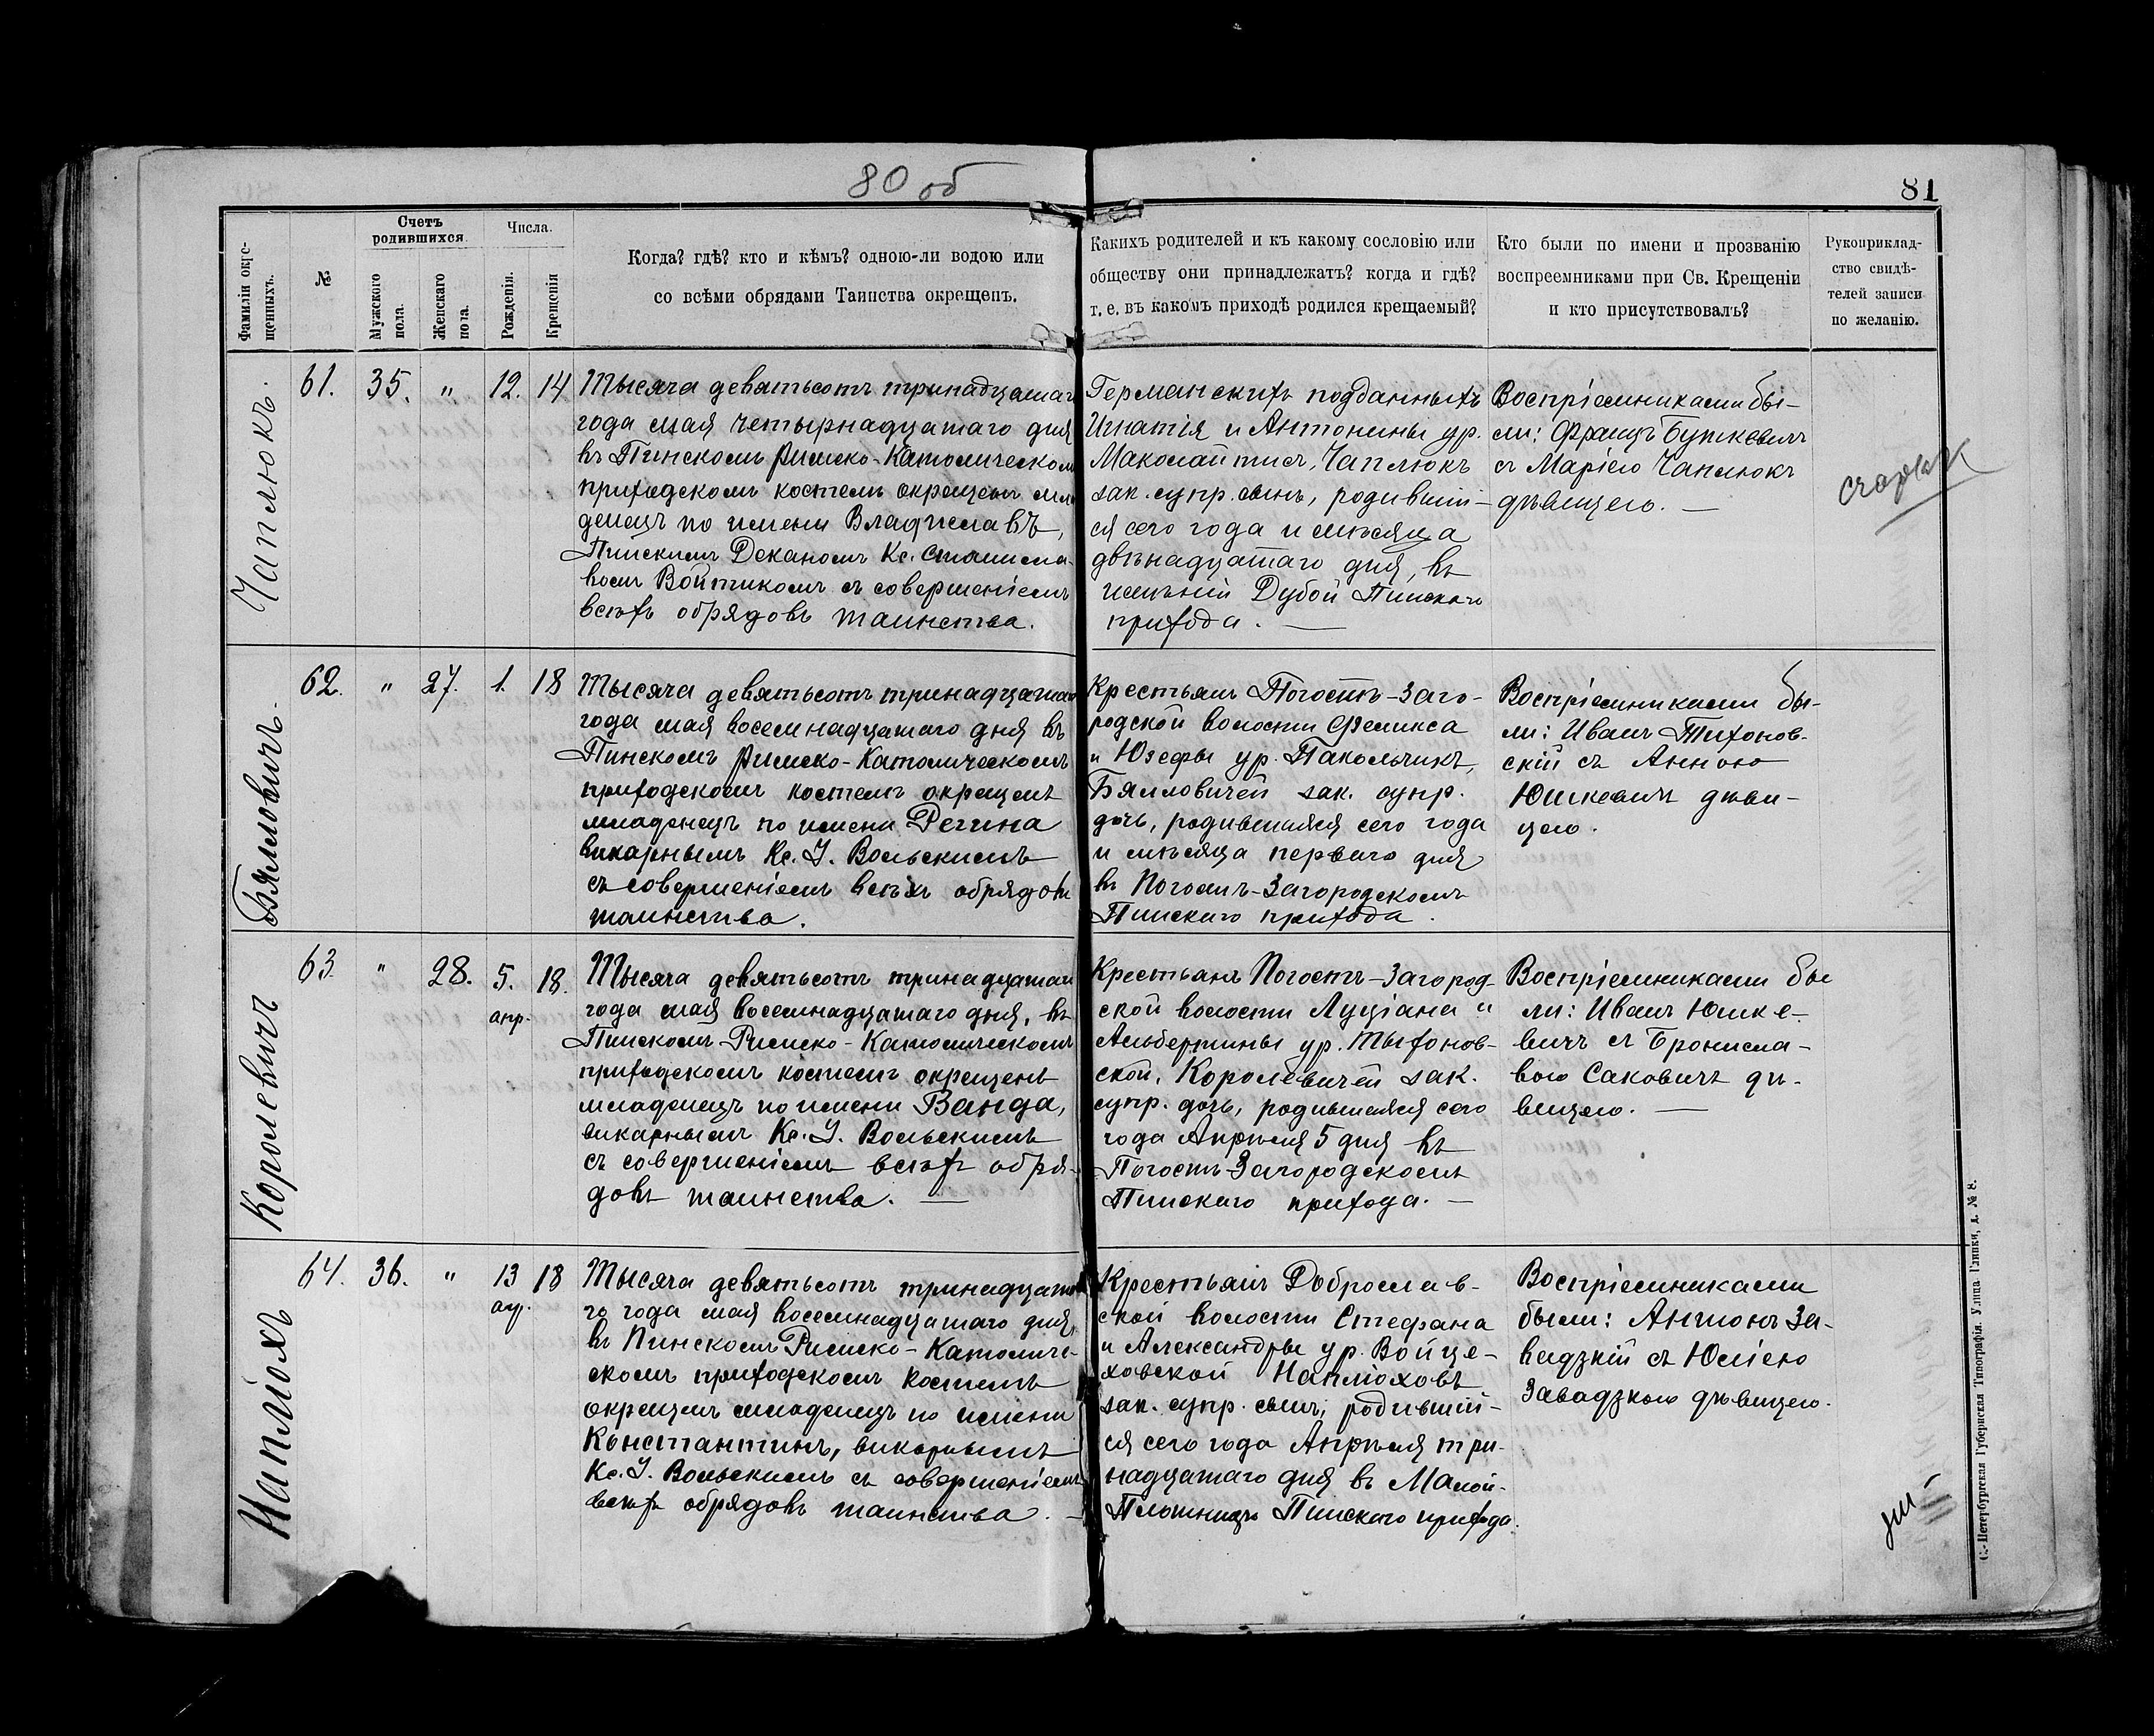 80 об
81
Фамиліи окре-
щенныхъ.
№
Счетъ
родившихся.
Мужского
пола.
Женскаго
пола.
Числа.
Рожденія.
Крещенія
Когда? гдѣ? кто и кѣмъ? одною-ли водою или
со всѣми обрядами Таинства окрещенъ.
Какихъ родителей и къ какому сословію или
обществу они принадлежатъ? когда и гдѣ?
т. е. въ какомъ приходѣ родился крещаемый?
Кто были по имени и прозванію
воспреемниками при Св. Крещеніи
и кто присутствовалъ?
Рукоприклад-
ство свидѣ-
телей записи
по желанію.
Чаплюкъ.
61.
35.
"
12.
14
Тысяча девятьсотъ тринадцатаго
года мая четырнадцатаго дня
въ Пинскомъ Римско-Католическомъ
приходскомъ костелѣ окрещенъ мла
денецъ по имени Владиславъ,
Пинскимъ Деканомъ Кс. Станисла-
вомъ Войтикомъ съ совершеніемъ
всѣхъ обрядовъ таинства.
Германскихъ подданныхъ
Игнатія и Антонины ур.
Маколайтисъ, Чаплюкъ
зак. супр. сынъ, родившій-
ся сего года и мѣсяца
двѣнадцатаго дня, въ
имѣніи Дубой Пинскаго
прихода. —
Воспріемниками бы-
ли: Францъ Буткевичъ
съ Маріею Чаплюкъ
дѣвицею. —
Бялловичъ.
62.
"
27.
1.
18
Тысяча девятьсотъ тринадцатаго
года мая восемнадцатаго дня въ
Пинскомъ Римско-Католическомъ
приходскомъ костелѣ окрещенъ
младенецъ по имени Регина
викарнымъ Кс. І. Вольскимъ
съ совершеніемъ всѣхъ обрядовъ
таинства.
Крестьянъ Погостъ-Заго-
родской волости Феликса
и Юзефы ур. Пакольчикъ,
Бялловичей зак. супр.
дочь, родившаяся сего года
и мѣсяца перваго дня
въ Погостъ-Загородскомъ
Пинскаго прихода.
Воспріемниками бы-
ли: Иванъ Тихонов-
скій съ Анною
Юшкевичъ дѣви-
цею.
Королевичъ
63.
"
28.
5.
апр.
18.
Тысяча девятьсотъ тринадцатаго
года мая восемнадцатаго дня, въ
Пинскомъ Римско-Католическомъ
приходскомъ костелѣ окрещенъ
младенецъ по имени Ванда,
викарнымъ Кс. І. Вольскимъ
съ совершеніемъ всѣхъ обря-
довъ таинства. —
Крестьянъ Погостъ-Загород-
ской волости Луціана и
Альбертины ур. Тыхонов-
ской, Королевичей зак.
супр. дочь, родившаяся сего
года Апрѣля 5 дня въ
Погостъ-Загородскомъ
Пинскаго прихода. —
Воспріемниками бы
ли: Иванъ Юшке-
вичъ съ Бронисла-
вою Саковичъ дѣ-
вицею. —
Наплюхъ
64.
36.
"
13
ап.
18
Тысяча девятьсотъ тринадцата
го года мая восемнадцатаго дня,
въ Пинскомъ Римско-Католиче-
скомъ приходскомъ костелѣ
окрещенъ младенецъ по имени
Константинъ, викарнымъ
Кс. І. Вольскимъ съ совершеніемъ
всѣхъ обрядовъ таинства. —
Крестьянъ Доброслав-
ской волости Стефана
и Александры ур. Войце-
ховской Наплюховъ
зак. супр. сынъ, родившій-
ся сего года Апрѣля три-
надцатаго дня въ Малой-
Плотницѣ Пинскаго прихода.
Воспріемниками
были: Антонъ За-
вадзкій съ Юліею
Завадзкою дѣвицею.
С.-Петербургская Губернская Типографія. Улица Глинки, д. № 8.